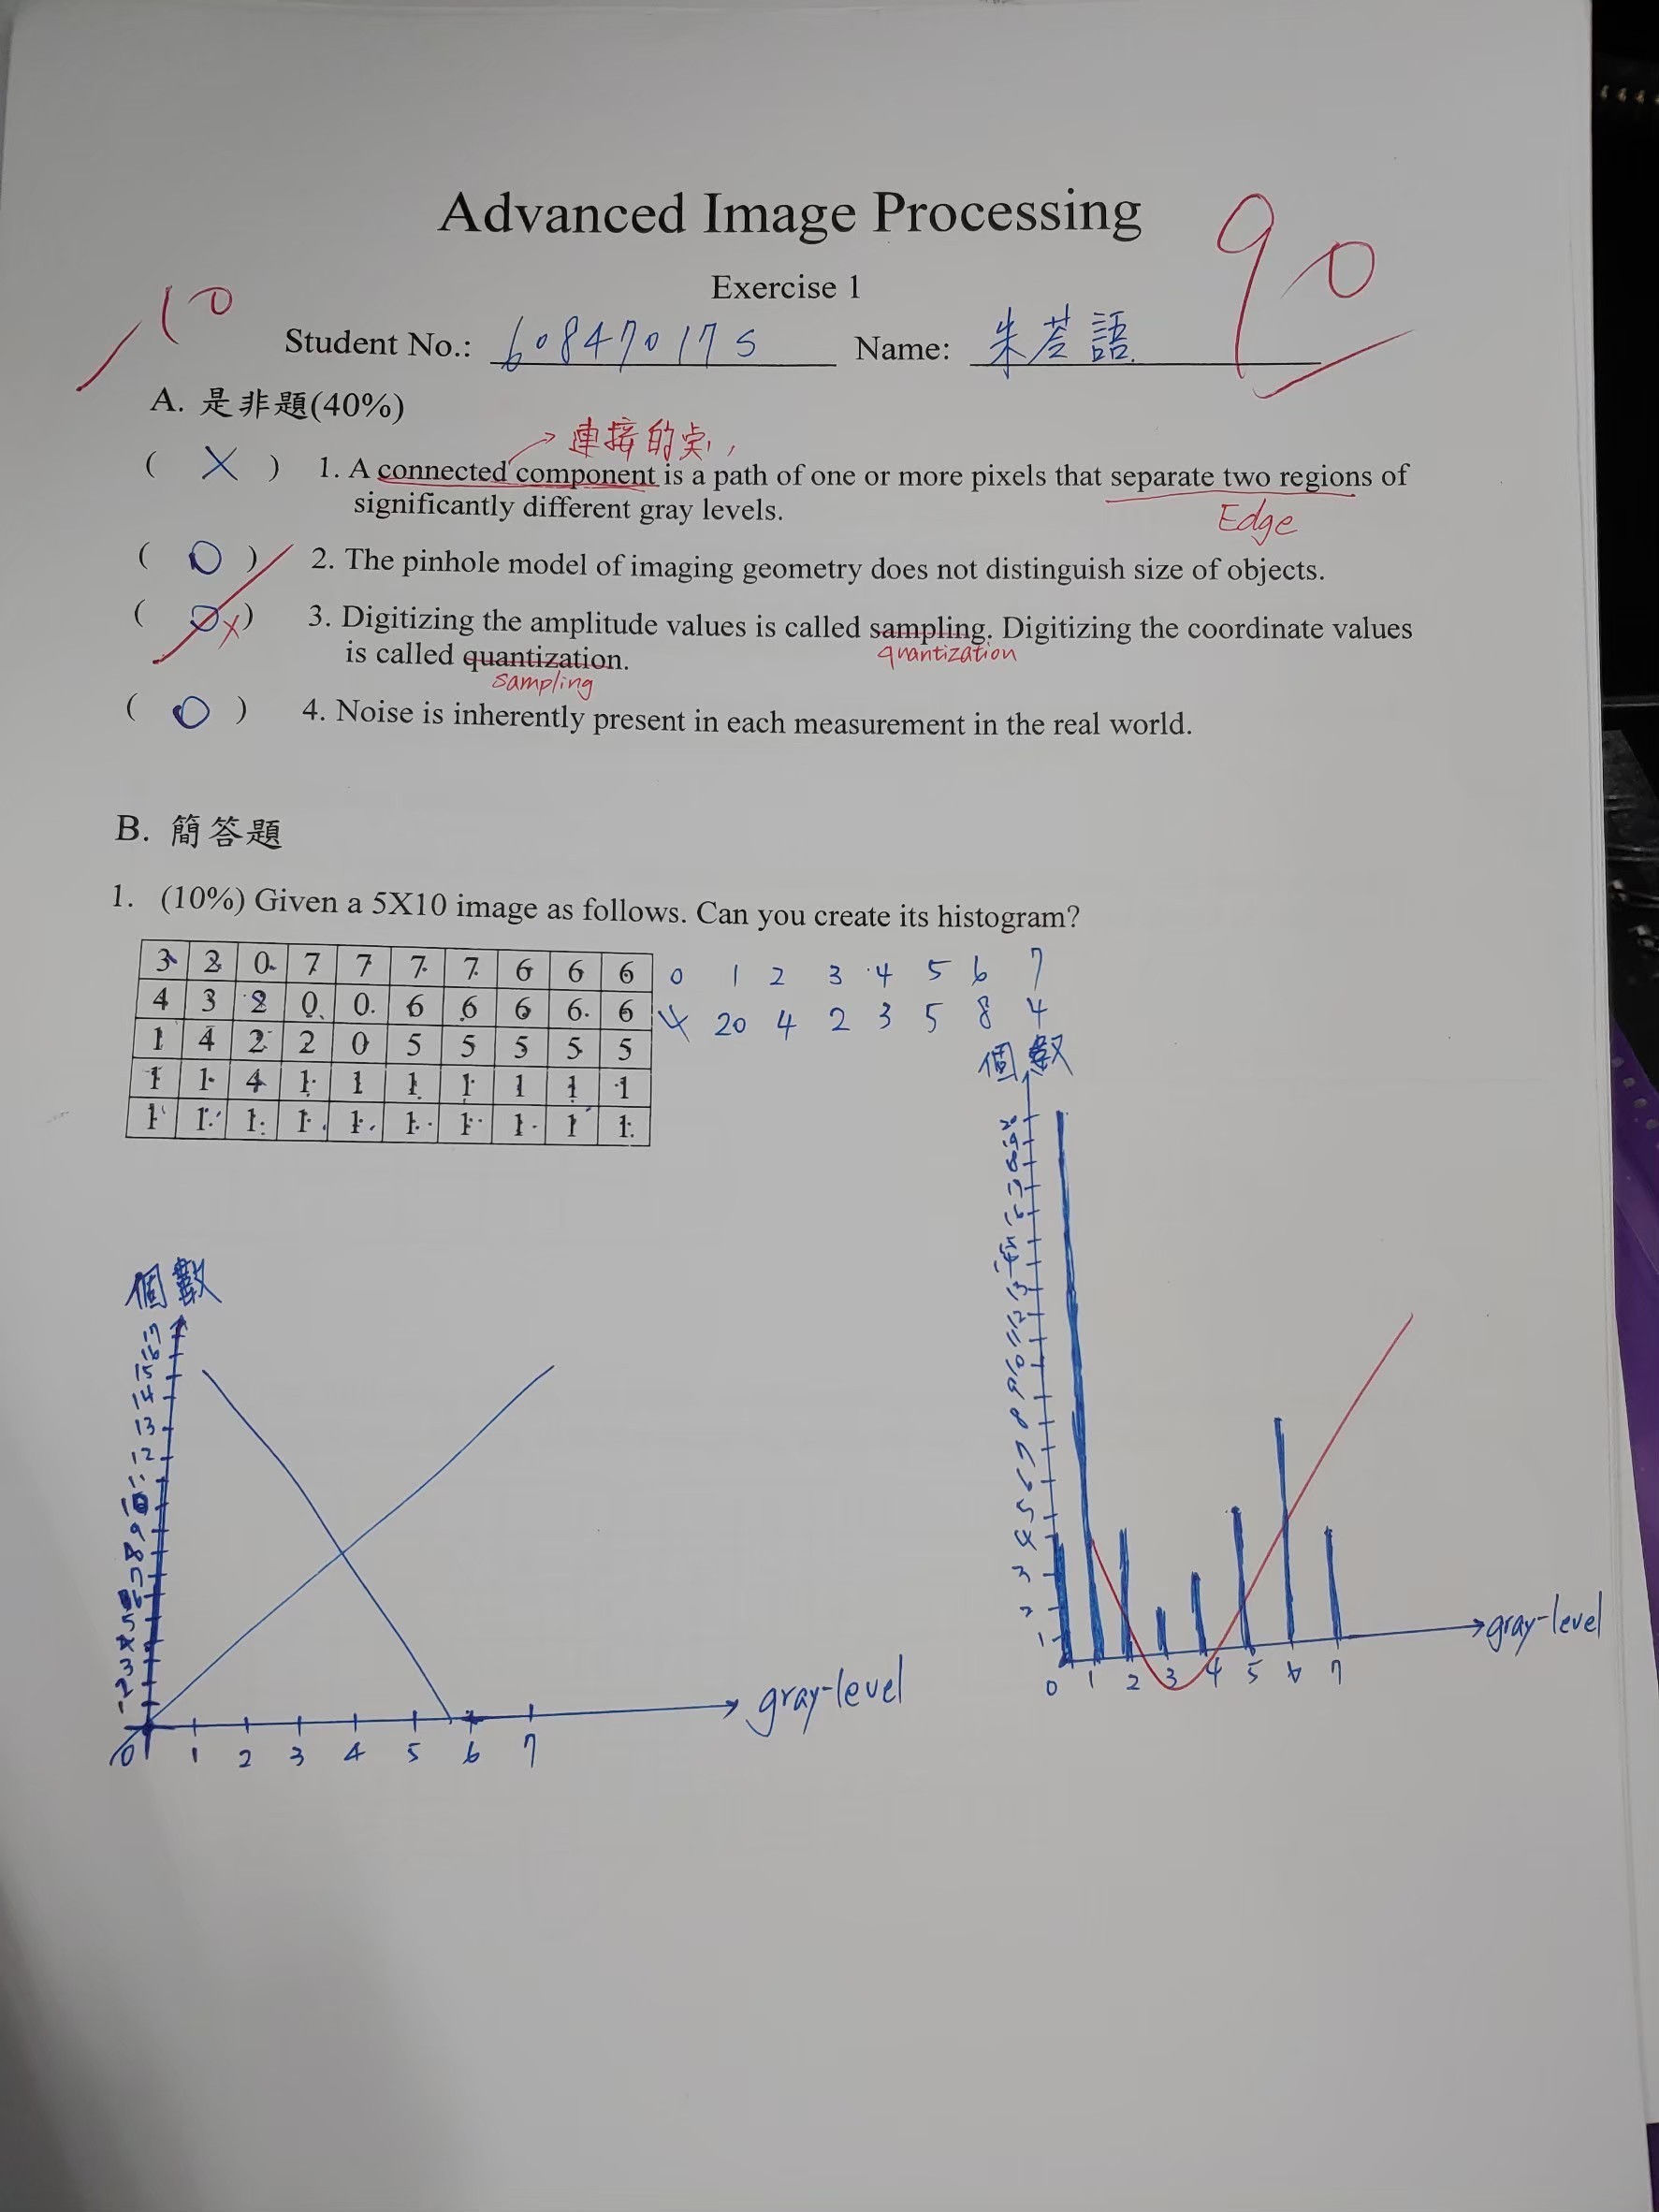 Advanced Image Processing
90
Exercise 1
10
Student No.: 60847017S Name: 朱苙語
A. 是非題(40%)
連接的桌,
( X ) 1. A connected component is a path of one or more pixels that separate two regions of
significantly different gray levels.
Edge
( O ) 2. The pinhole model of imaging geometry does not distinguish size of objects.
( O X ) 3. Digitizing the amplitude values is called sampling. Digitizing the coordinate values
quantization
is called quantization.
sampling
( O ) 4. Noise is inherently present in each measurement in the real world.
B. 簡答題
1. (10%) Given a 5X10 image as follows. Can you create its histogram?
3 2 0 7 7 7 7 6 6 6
4 3 2 0 0 6 6 6 6 6
1 4 2 2 0 5 5 5 5 5
1 1 4 1 1 1 1 1 1 1
1 1 1 1 1 1 1 1 1 1
0 1 2 3 4 5 6 7
4 20 4 2 3 5 8 4
個數
20
19
18
17
16
15
14
13
12
11
10
9
8
7
6
5
4
3
2
1
0 1 2 3 4 5 6 7
gray-level
個數
17
16
15
14
13
12
11
10
9
8
7
6
5
4
3
2
1
0 1 2 3 4 5 6 7
gray-level